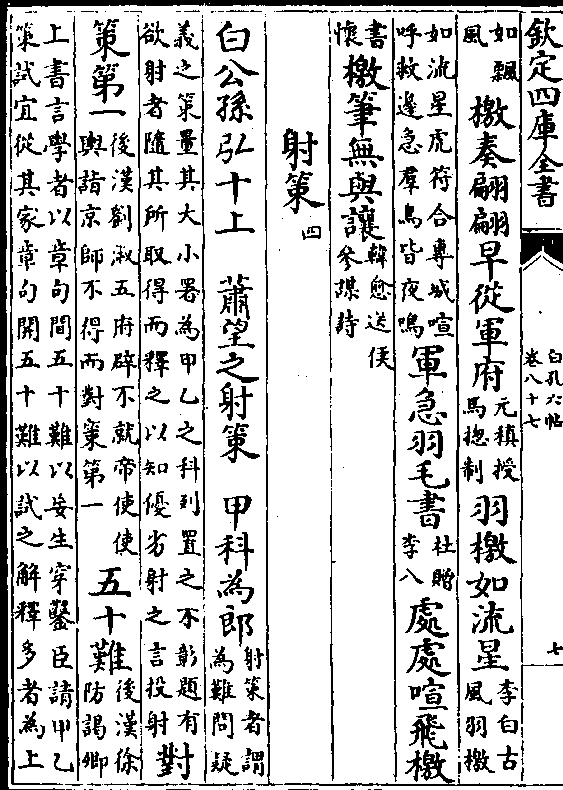 欽定四庫全書
白孔六帖
卷八十七
七
如飄風檄奏翩翩早從軍府元稹授馬揔制羽檄如流星李白古風羽檄
如流星虎符合專城喧呼救邊急羣鳥皆夜鳴軍急羽毛書杜贈李八處處喧飛檄
書懷檄筆無與讓韓愈送侯參謀詩
射策四
白公孫弘十上 蕭望之射策 甲科為郎射策者謂為難問疑
義之策量其大小署為甲乙之科列置之不彰題有欲射者隨其所取得而釋之以知優劣射之言投射對
策第一後漢劉淑五府辟不就帝使使輿詣京師不得而對策第一五十難後漢徐防謁卿
上書言學者以章句間五十難以妄生穿鑿臣請甲乙策試宜從其家章句開五十難以試之解釋多者為上